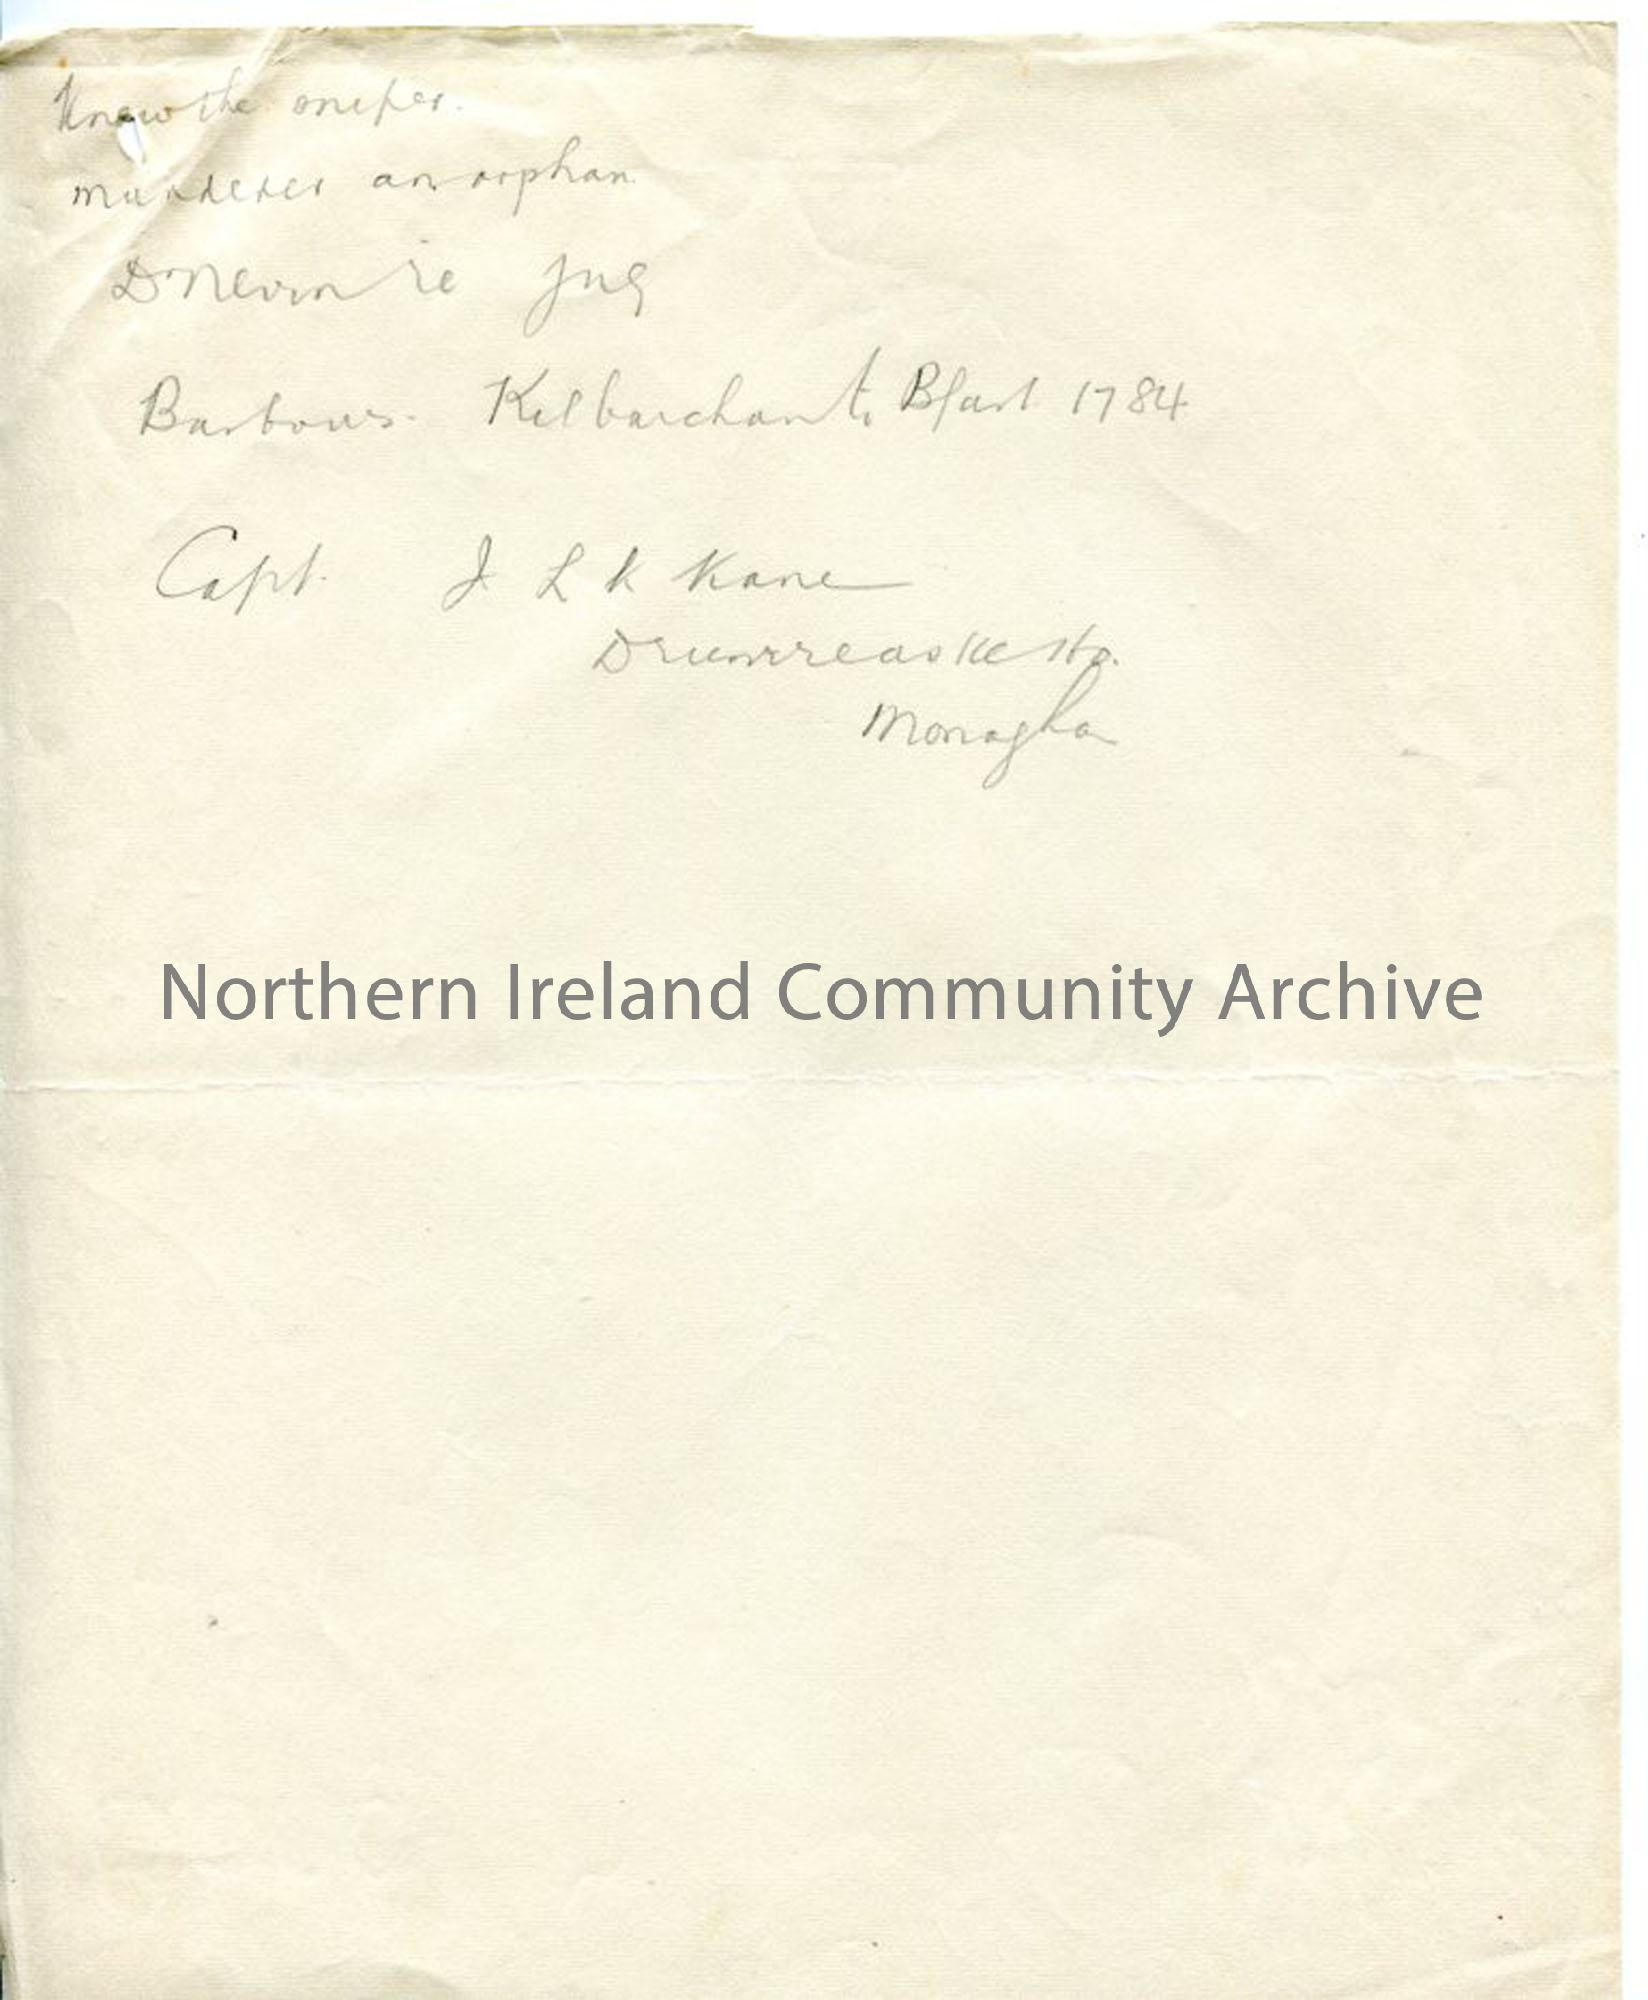 Knew the sniper.
murderer an orphan
Dr Nevin re Jug
Barbours. Kilbarchan to Bfast 1784
Capt. J L K Kane
Drumreaske Ho.
Monaghan
Northern Ireland Community Archive